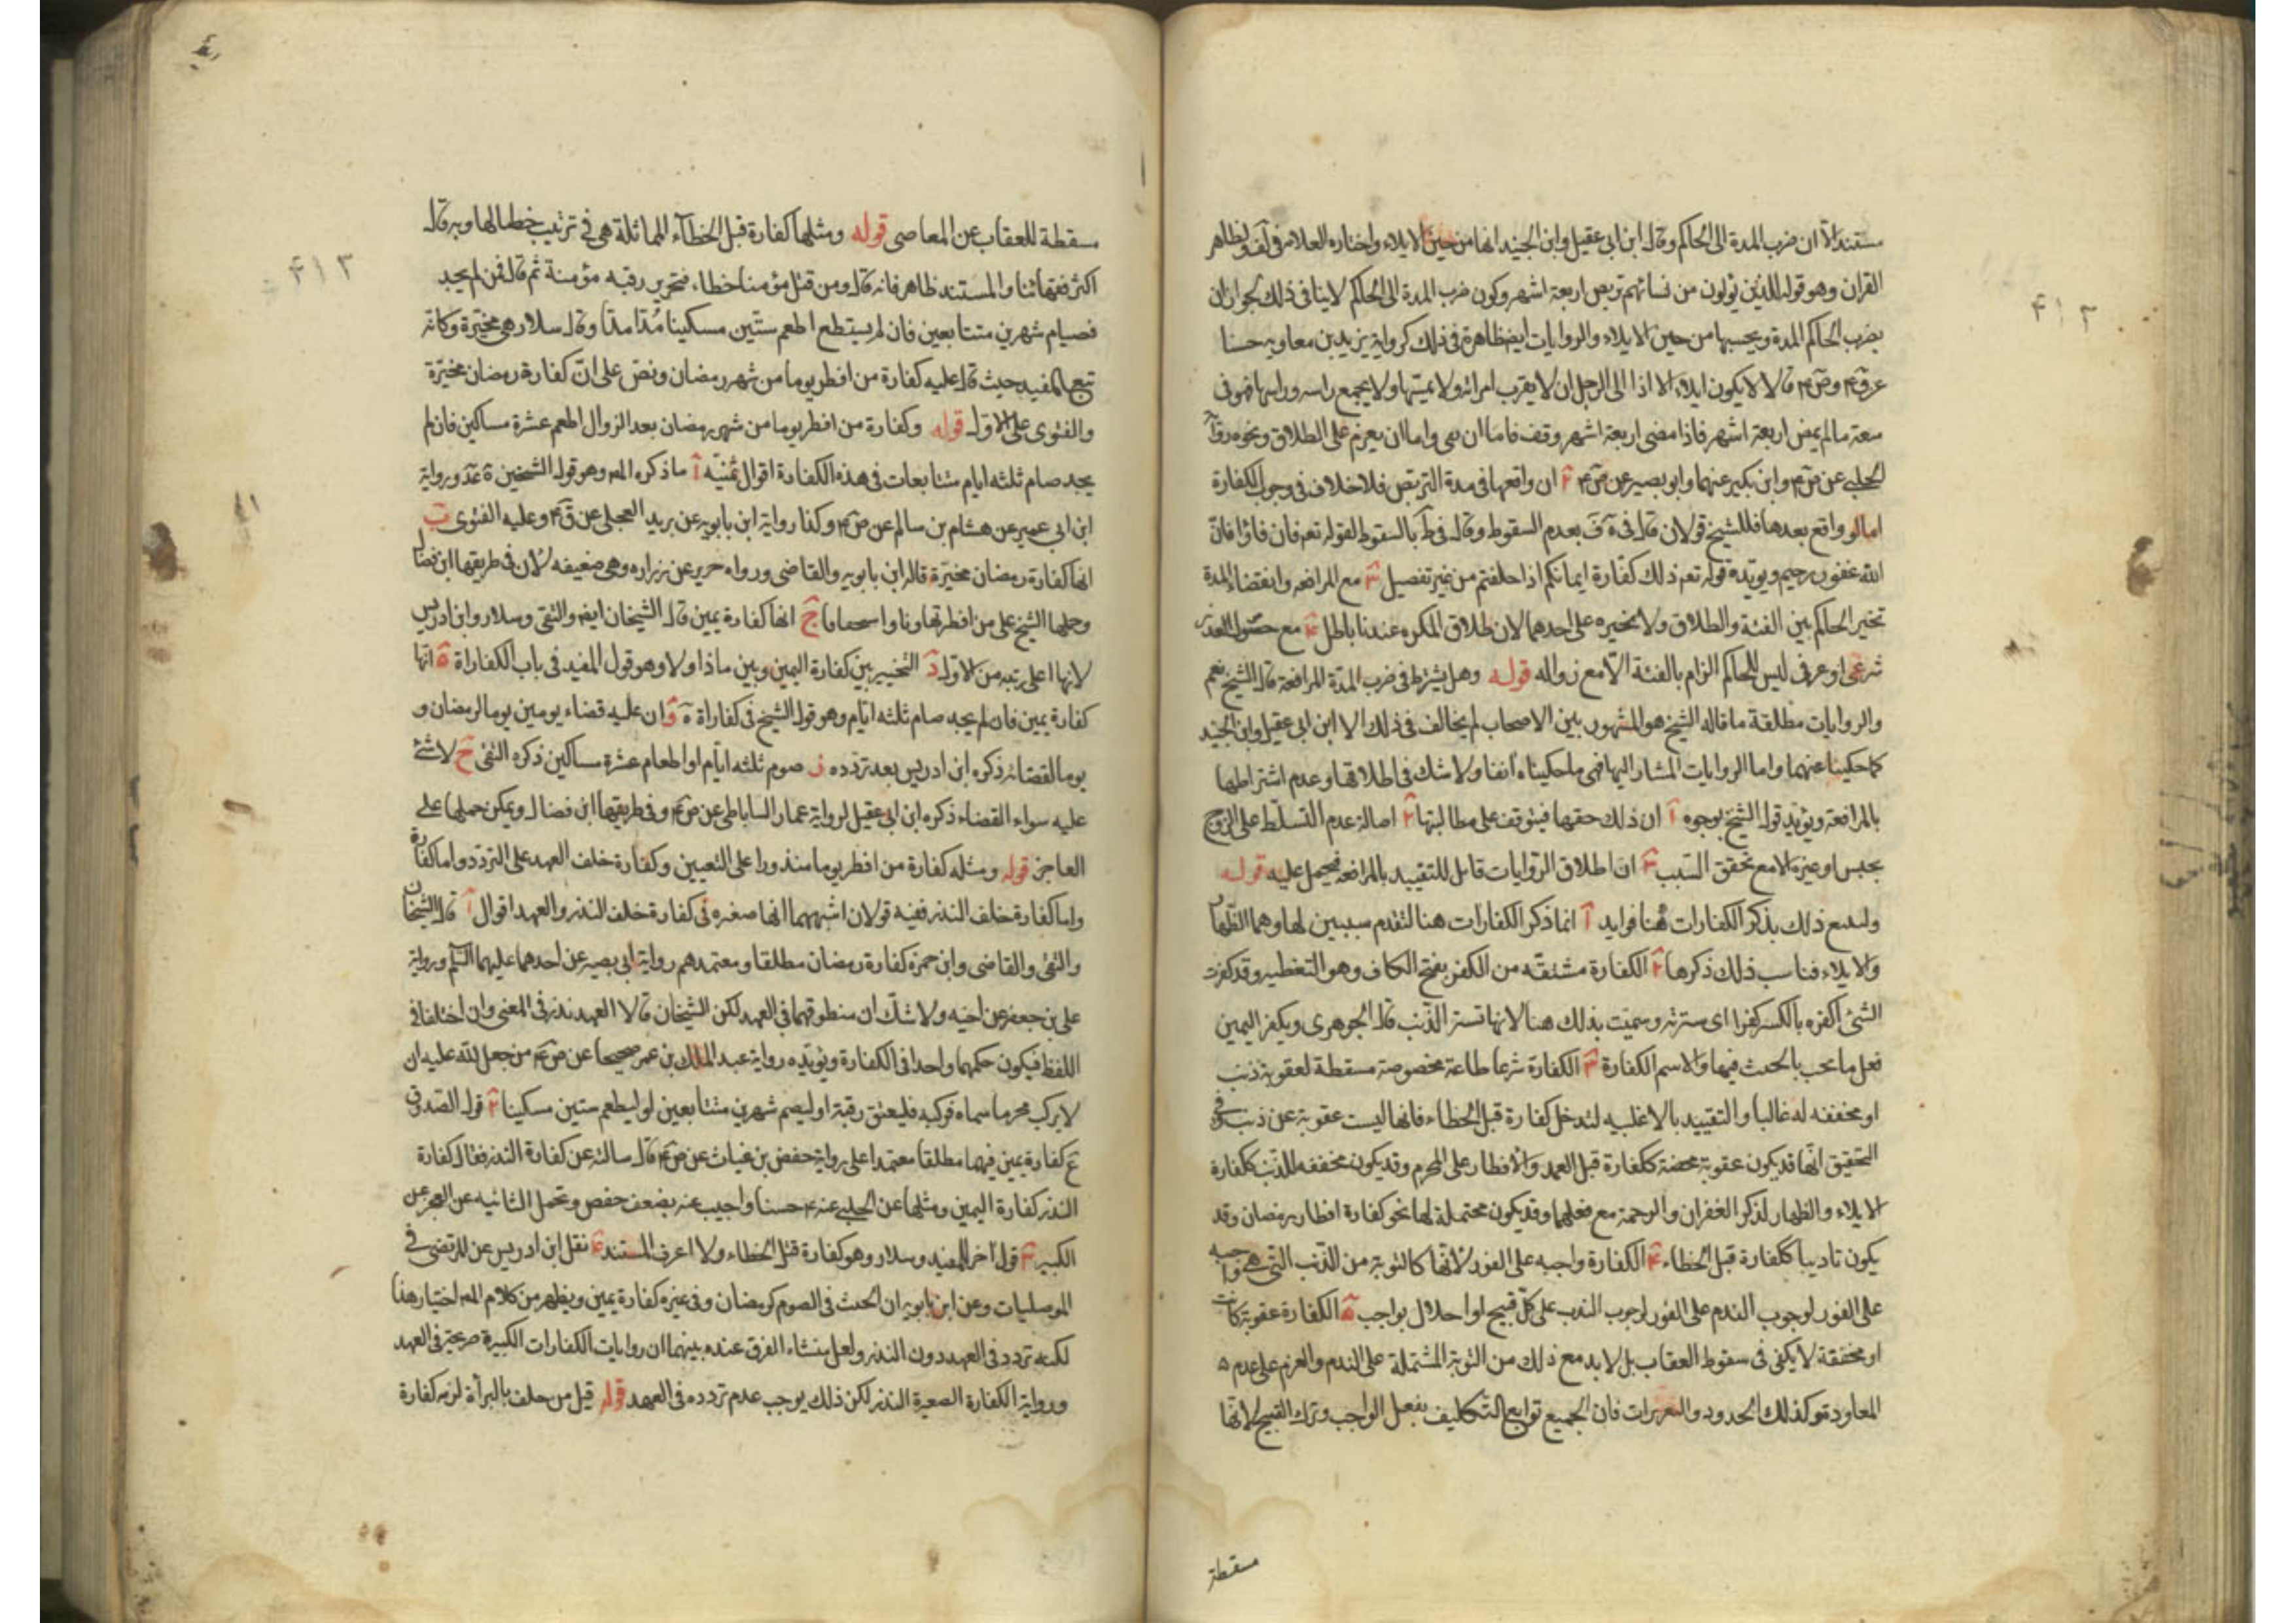 مستندا الا ان ضرب المدة الى الحاكم وقال ابن ابي عقيل وابن الجنيد انها من حين الايلاء واختاره العلامه في لف ولظاهر
القران وهو قوله للذين يؤلون من نسائهم تربص اربعة اشهر وكون ضرب المدة الى الحاكم لاينافى ذلك لجواز ان
يضرب الحاكم المدة ويحسبها من حين الايلاء والروايات ايض ظاهرة فى ذلك كرواية بريد بن معاويه حسنا
عن ق ع وص ع قالا لا يكون ايلاء الا اذا الى الرجل ان لا يقرب امراته ولا يمسها ولا يجمع راسه وراسها فهو فى
سعة مالم يمض اربعة اشهر فاذا مضى اربعة اشهر وقف فاما ان يفى واما ان يعزم على الطلاق ونحوه روا
الحلبى عن ص ع وابن بكير عنهما وابو بصير عن ص ع ٢ ان واقعها فى مدة التربص فلا خلاف فى وجوب الكفارة
اما لو واقع بعدها فللشيخ قولان قال فى ف بعدم السقوط وقال فى ط بالسقوط لقوله تع فان فاؤا فان
الله غفور رحيم ويؤيده قوله تع ذلك كفارة ايمانكم اذا حلفتم من غير تفصيل ٣ مع المرافعه وانقضاء المدة
تخير الحاكم بين الفئة والطلاق ولا يخيره على احدهما لان طلاق المكره عندنا باطل ٤ مع حصول العذر
شرعى او عرفى ليس للحاكم الزام بالفئة الا مع زواله قوله وهل يشترط فى ضرب المدة المرافعة قال الشيخ نعم
والروايات مطلقة ما قاله الشيخ هو المشهور بين الاصحاب لم يخالف فى ذلك الا ابن ابى عقيل وابن الجنيد
كما حكينا عنهما واما الروايات المشار اليها فهى ما حكيناه انفا ولا شك فى اطلاقها وعدم اشتراطها
بالمرافعة ويؤيد قول الشيخ بوجوه أ ان ذلك حقها فيتوقف على مطالبتها ٢ اصالة عدم التسلط على الزوج
بحبس او غيره الا مع تحقق السبب ٣ ان اطلاق الروايات قابل للتقييد بالمرافعة فيحمل عليه قوله
ولنتبع ذلك بذكر الكفارات هنا فوايد أ انما ذكر الكفارات هنا لتقدم سببين لها وهما الظهار
والايلاء فناسب ذلك ذكرها ٢ الكفارة مشتقه من الكفر بفتح الكاف وهو التغطيه وقد كفرت
الشئ اكفره بالكسر كفرا اى سترته وسميت بذلك هنا لانها تستر الذنب قال الجوهرى وتكفير اليمين
فعل ما يجب بالحنث فيها والاسم الكفارة ٣ الكفارة شرعا طاعة مخصوصة مسقطة لعقوبة ذنب
او مخففه له غالبا والتقييد بالاغلبيه لتدخل كفارة قتل الخطاء فانها ليست عقوبة عن ذنب وفى
التحقيق انها قد يكون عقوبة محضة ككفارة قتل العمد والافطار على المحرم وقد يكون مخففه للذنب ككفارة
الايلاء والظهار لذكر الغفران والرحمة مع فعلهما وقد يكون محتملة لها نحو كفارة افطار رمضان وقد
يكون تاديبا ككفارة قتل الخطاء ٤ الكفارة واجبه على الفور لانها كالتوبة من الذنب التى هى واجبه
على الفور لوجوب الندم على الفور لوجوب الندب على كل قبيح او اخلال بواجب ٥ الكفارة عقوبة كانت
او مخففة لا يكفى فى سقوط العقاب بل لابد مع ذلك من التوبة المشتملة على الندم والعزم على عدم
المعاودة وكذلك الحدود والتعزيرات فان الجميع توابع التكاليف بفعل الواجب وترك القبيح لانها
مسقطة
٤١٣
مسقطة للعقاب عن المعاصى قوله ومثلها كفارة قتل الخطاء المماثلة هى فى ترتيب خصالها وبه قال
اكثر فقهائنا والمستند ظاهر فانه قال ومن قتل مؤمنا خطاء فتحرير رقبه مؤمنة ثم قال فمن لم يجد
فصيام شهرين متتابعين فان لم يستطع اطعم ستين مسكينا مدا مدا وقال سلار هى مخيرة وكانه
تبع المفيد حيث قال عليه كفارة من افطر يوما من شهر رمضان ونص على ان كفارة رمضان مخيرة
والفتوى على الاول قوله وكفارة من افطر يوما من شهر رمضان بعد الزوال اطعم عشرة مساكين فان لم
يجد صام ثلثه ايام متتابعات فى هذه الكفارة اقوال ثمنيه أ ما ذكره المص وهو قول الشيخين ورواية
ابن ابي عمير عن هشام بن سالم عن ص ع وكذا رواية ابن بابويه عن بريد العجلى عن ق ع وعليه الفتوى ب
انها كفارة رمضان مخيرة قاله ابن بابويه والقاضى ورواه حريز عن زراره وهى ضعيفه لان فى طريقها ابن فضال
وحملها الشيخ على من افطر تهاونا واستخفافا ج انها كفارة يمين قال الشيخان ايض والتقى وسلار وابن ادريس
لانها اعلى رتبه من الاول د التخيير بين كفارة اليمين وبين ماذا اولا وهو قول المفيد فى باب الكفاراة ه انها
كفارة يمين فان لم يجد صام ثلثه ايام وهو قول الشيخ فى كفاراة و ان عليه قضاء يومين يوما لرمضان و
يوما لقضائه ذكره ابن ادريس بعد تردده ز صوم ثلثه ايام او اطعام عشرة مساكين ذكره التقى ح لا شئ
عليه سواء القضاء ذكره ابن ابى عقيل لرواية عمار الساباطى عن ص ع وفى طريقها ابن فضال ويمكن حملها على
العاجز قوله ومثله كفارة من افطر يوما منذورا على التعيين وكفارة خلف العهد على التردد واما كفارة
واما كفارة خلف النذر ففيه قولان اشبههما انها صغيره فى كفارة خلف النذر والعهد اقوال أ قال الشيخان
والتقى والقاضى وابن حمزه كفارة رمضان مطلقا ومعتمدهم رواية ابى بصير عن احدهما عليهما السلم ورواية
على بن جعفر عن اخيه ولا شك ان منطوقهما فى العهد لكن الشيخان قالا العهد نذر فى المعنى وان اختلفا فى
اللفظ فيكون حكمهما واحدا فى الكفارة ويؤيده رواية عبد الملك بن عمر صحيحا عن ص ع من جعل لله عليه ان
لا يركب محرما سماه فركبه فليعتق رقبة او ليصم شهرين متتابعين او ليطعم ستين مسكينا ٢ قول الصدوق
كفارة يمين فيهما مطلقا معتمدا على رواية حفص بن غياث عن ص ع قال سالته عن كفارة النذر فقال كفارة
النذر كفارة اليمين ومثلها عن الحلبى عنه ع حسنا واجيب عنه بضعف حفص وتحمل الثانيه عن العجز عن
الكبير ٣ قول اخر للمفيد وسلار وهو كفارة قتل الخطاء ولا اعرف المستند ٤ نقل ابن ادريس عن المرتضى فى
الموصليات وعن ابن بابويه ان الحنث فى الصوم كرمضان وفى غيره كفارة يمين ويظهر من كلام المص اختيار هذا
لكنه تردد فى العهد دون النذر ولعل منشاء الفرق عنده بينهما ان روايات الكفارات الكبيرة صريحة فى العهد
ورواية الكفارة الصغيرة النذر لكن ذلك يوجب عدم تردده فى العهد قوله قيل من حلف بالبرأة لزمه كفارة
٤١٣